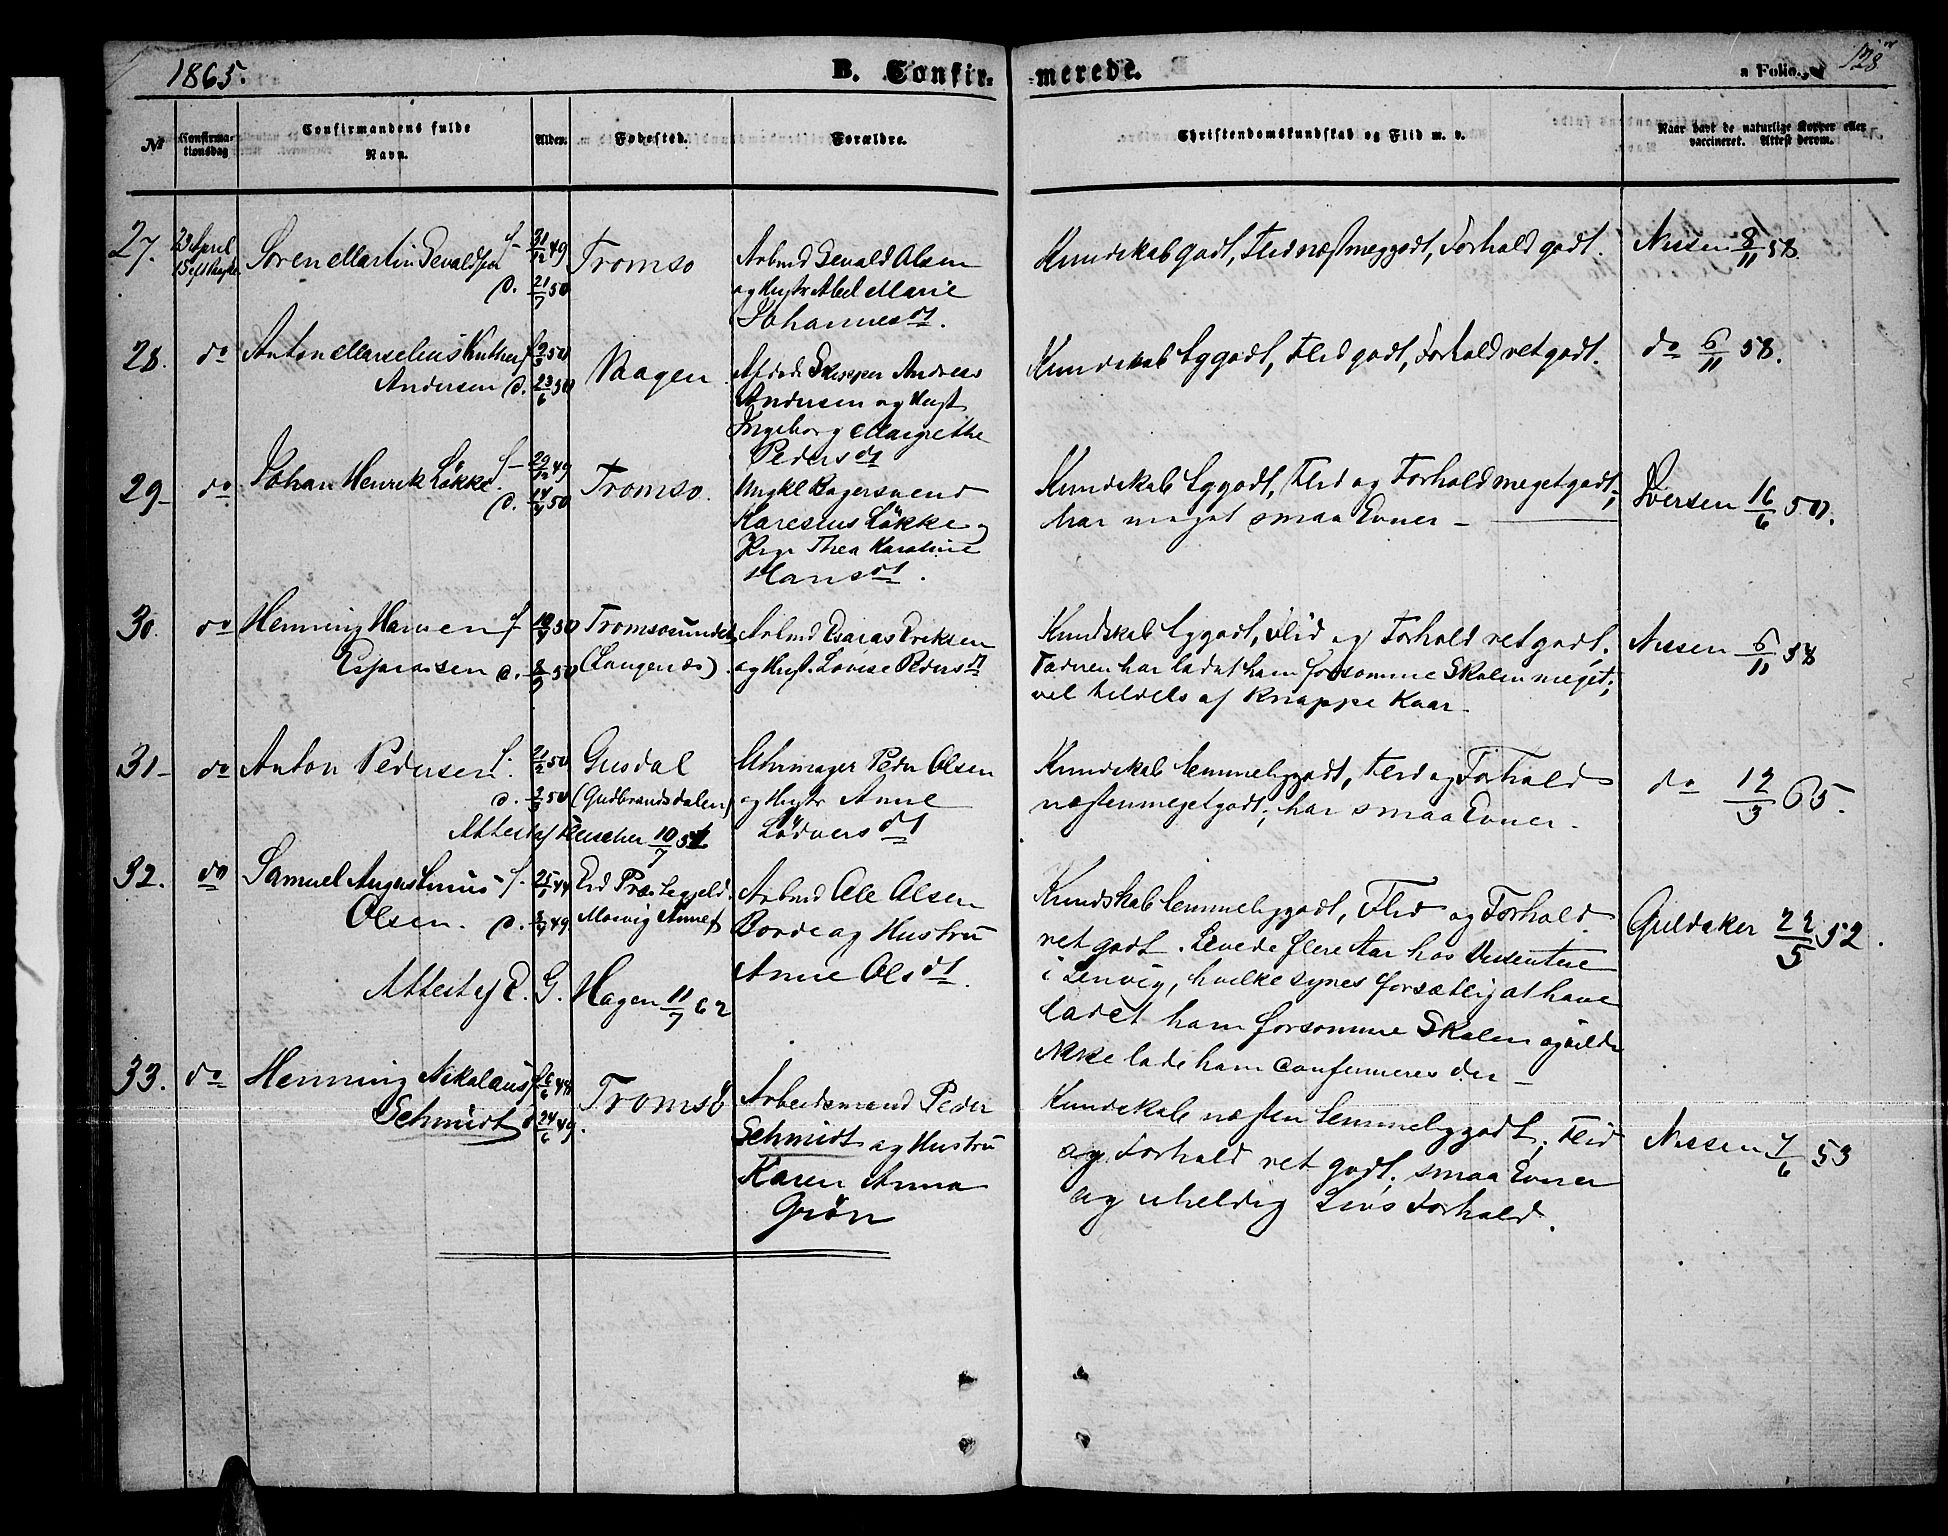 1865.
B. Confir-
-merede.
a Folio.
128
No
Confirma-
tionsdag
Confirmandens fulde
Navn.
Alder.
Fødested.
Forældre.
Christendomskundskab og Flid m. v.
Naar havt de naturlige Kopper eller
vaccineret. Attest derom.
27.
23 April
Søren Martin Sevaldsen
f. 31/12 49
d. 21/7 50
Tromsø
Arbmd Sevald Olsen
og Hustr Abel Marie
Johannesdt.
Kundskab godt, Flid næst meg godt, Forhold godt.
Nissen 8/11 58.
28.
do
Anton Marselius
Andersen d. 23/6 50
Vaagen
Afdøde Skipper Andreas
Andersen og Hust
Ingeborg Margrethe
Pedersdt
Kundskab tg godt, Flid godt, Forhold ret godt.
do 6/11 58.
29-
do
Johan Henrik Løkke
f. 29/12 49
d. 14/4 50
Tromsø.
Ungkl Bagersvend
Karesius Løkke og
Pige Thea Karoline
Hansdt.
Kundskab tg godt, Flid og Forhold meget godt;
har meget smaa Evner -
Iversen 16/6 50.
30.
do
Henning Hansen f.
Esaiassen d.
Tromsøsundet
(Langenæs).
Arbmd Esaias Eriksen
og Hust. Lovise Pedersdt
Kundskab tg godt, Flid og Forhold ret godt.
Faderen har ladet ham forsømme Skolen meget;
vel tildels af knappe Kaar.
Nissen 6/11 58
31-
do
Anton Pedersen f. 21/2 50
d. 2/3 50
Gusdal
(Gudbrandsdalen)
Attest af 10/7 51
Uhrmager Peder Olsen
og Hustr Anne
Lødversdt
Kundskab temmelig godt, Flid og Forhold
næsten meget godt; har smaa Evner.
do 12/3 65.
32.
do
Samuel Augustinus f.
Olsen. d.
Eid Præstegjeld.
Attest af E. G. Hagen 11/7 62
Arbmd Ole Olsen
Borde og Hustru
Anne Olsdt.
Kundskab temmelig godt, Flid og Forhold
ret godt. Levede flere Aar hos Dissentere
i Lenvig, hvilke synes forsætlig at have
ladet ham forsømme Skolen og vilde
ikke lade ham confirmeres der -
Guldaker 22/5 52.
33.
do
Henning Nikolaus
Schmidt d. 24/6 49.
Tromsø
Arbeidsmand Peder
Schmidt og Hustru
Karen Anna
Grøn
Kundskab næsten temmelig godt; Flid
og Forhold ret godt; smaa Evner
og uheldig Livs Forhold.
Nissen 7/6 53